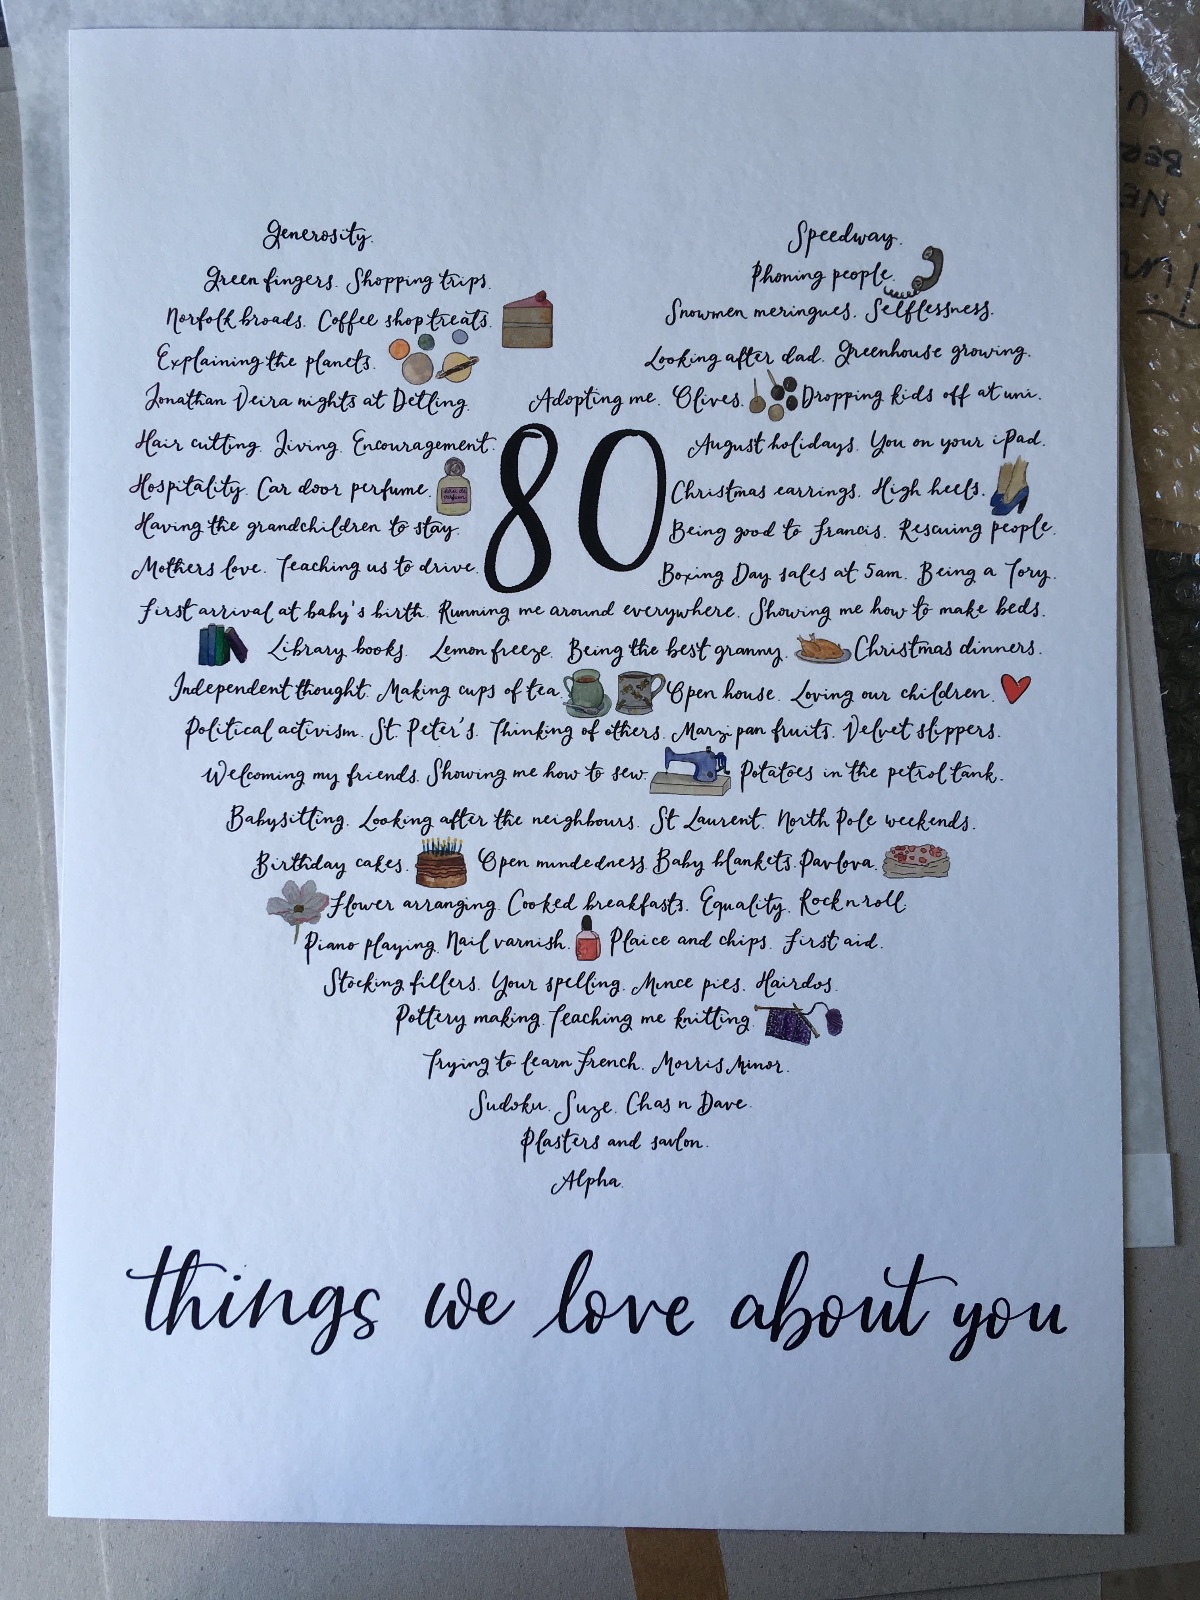 Generosity.
Speedway.
Green fingers. Shopping trips.
Phoning people.
Norfolk broads. Coffee shop treats.
Snowmen meringues. Selflessness.
Explaining the planets.
Looking after dad. Greenhouse growing.
Jonathan Veira nights at Detling.
Adopting me. Olives. Dropping kids off at uni.
Hair cutting. Living. Encouragement.
August holidays. You on your iPad.
80
Hospitality. Car door perfume.
eau de parfum
Christmas earrings. High heels.
Having the grandchildren to stay.
Being good to Francis. Rescuing people.
Mothers love. Teaching us to drive.
Boxing Day sales at 5am. Being a Tory.
First arrival at baby's birth. Running me around everywhere. Showing me how to make beds.
Library books. Lemon freeze. Being the best granny. Christmas dinners.
Independent thought. Making cups of tea. Open house. Loving our children.
Political activism. St. Peter's. Thinking of others. Marzipan fruits. Velvet slippers.
Welcoming my friends. Showing me how to sew. Potatoes in the petrol tank.
Babysitting. Looking after the neighbours. St Laurent. North Pole weekends.
Birthday cakes. Open mindedness. Baby blankets. Pavlova.
Flower arranging. Cooked breakfasts. Equality. Rock n roll.
Piano playing. Nail varnish. Plaice and chips. First aid.
Stocking fillers. Your spelling. Mince pies. Hairdos.
Pottery making. Teaching me knitting.
Trying to learn French. Morris Minor.
Sudoku. Suze. Chas n Dave.
Plasters and savlon.
Alpha.
things we love about you